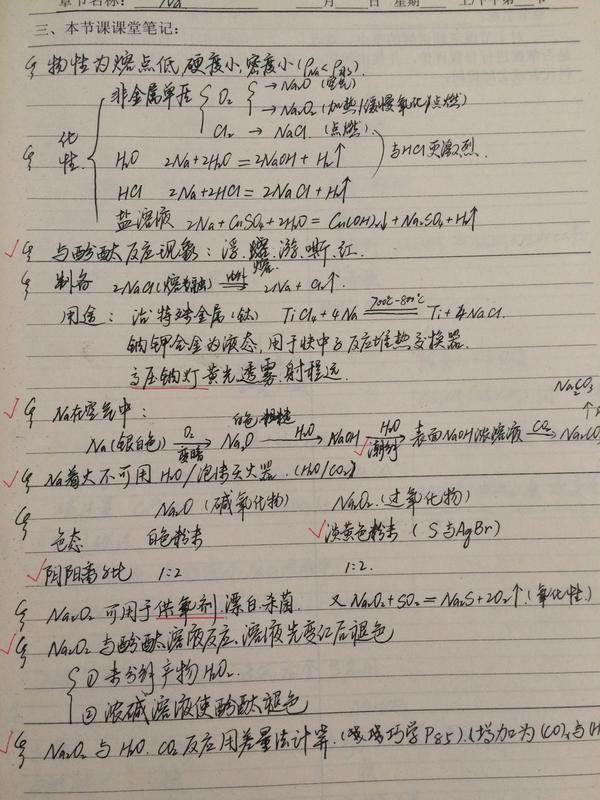 章节名称: Na 月 日 星期 上/下午第 节
三、本节课课堂笔记:
物性为熔点低,硬度小,密度小(ρNa<ρ水).
非金属单质 O₂ →Na₂O (空气)
→Na₂O₂ (加热/缓慢氧化/点燃)
Cl₂ → NaCl (点燃)
化性
与HCl更激烈.
H₂O 2Na+2H₂O=2NaOH+H₂↑
HCl 2Na+2HCl=2NaCl+H₂↑
盐溶液 2Na+CuSO₄+2H₂O=Cu(OH)₂↓+Na₂SO₄+H₂↑
与酚酞反应现象:浮.熔.游.嘶.红.
制备 2NaCl(熔融) 2Na+Cl₂↑.
用途: 冶特殊金属(钛) TiCl₄+4Na 700℃-800℃ Ti+4NaCl.
钠钾合金为液态,用于快中子反应堆热交换器.
高压钠灯黄光透雾.射程远.
Na₂CO₃
Na在空气中:
Na(银白色) O₂ 变暗 Na₂O 白色 H₂O NaOH H₂O 潮解 表面NaOH浓溶液 CO₂ Na₂CO₃
Na着火不可用H₂O/泡沫灭火器.(H₂O/CO₂)
Na₂O (碱氧化物) Na₂O₂.(过氧化物)
色态 白色粉末 淡黄色粉末 (S与AgBr)
阴阳离子比 1:2 1:2.
Na₂O₂可用于供氧剂.漂白.杀菌. 又Na₂O₂+SO₂=Na₂S+2O₂↑.(氧化性.)
Na₂O₂与酚酞溶液反应.溶液先变红后褪色
① 未分解产物H₂O₂.
② 浓碱溶液使酚酞褪色
Na₂O₂与H₂O.CO₂反应用差量法计算.(巧学P85).(增加为"CO",与H